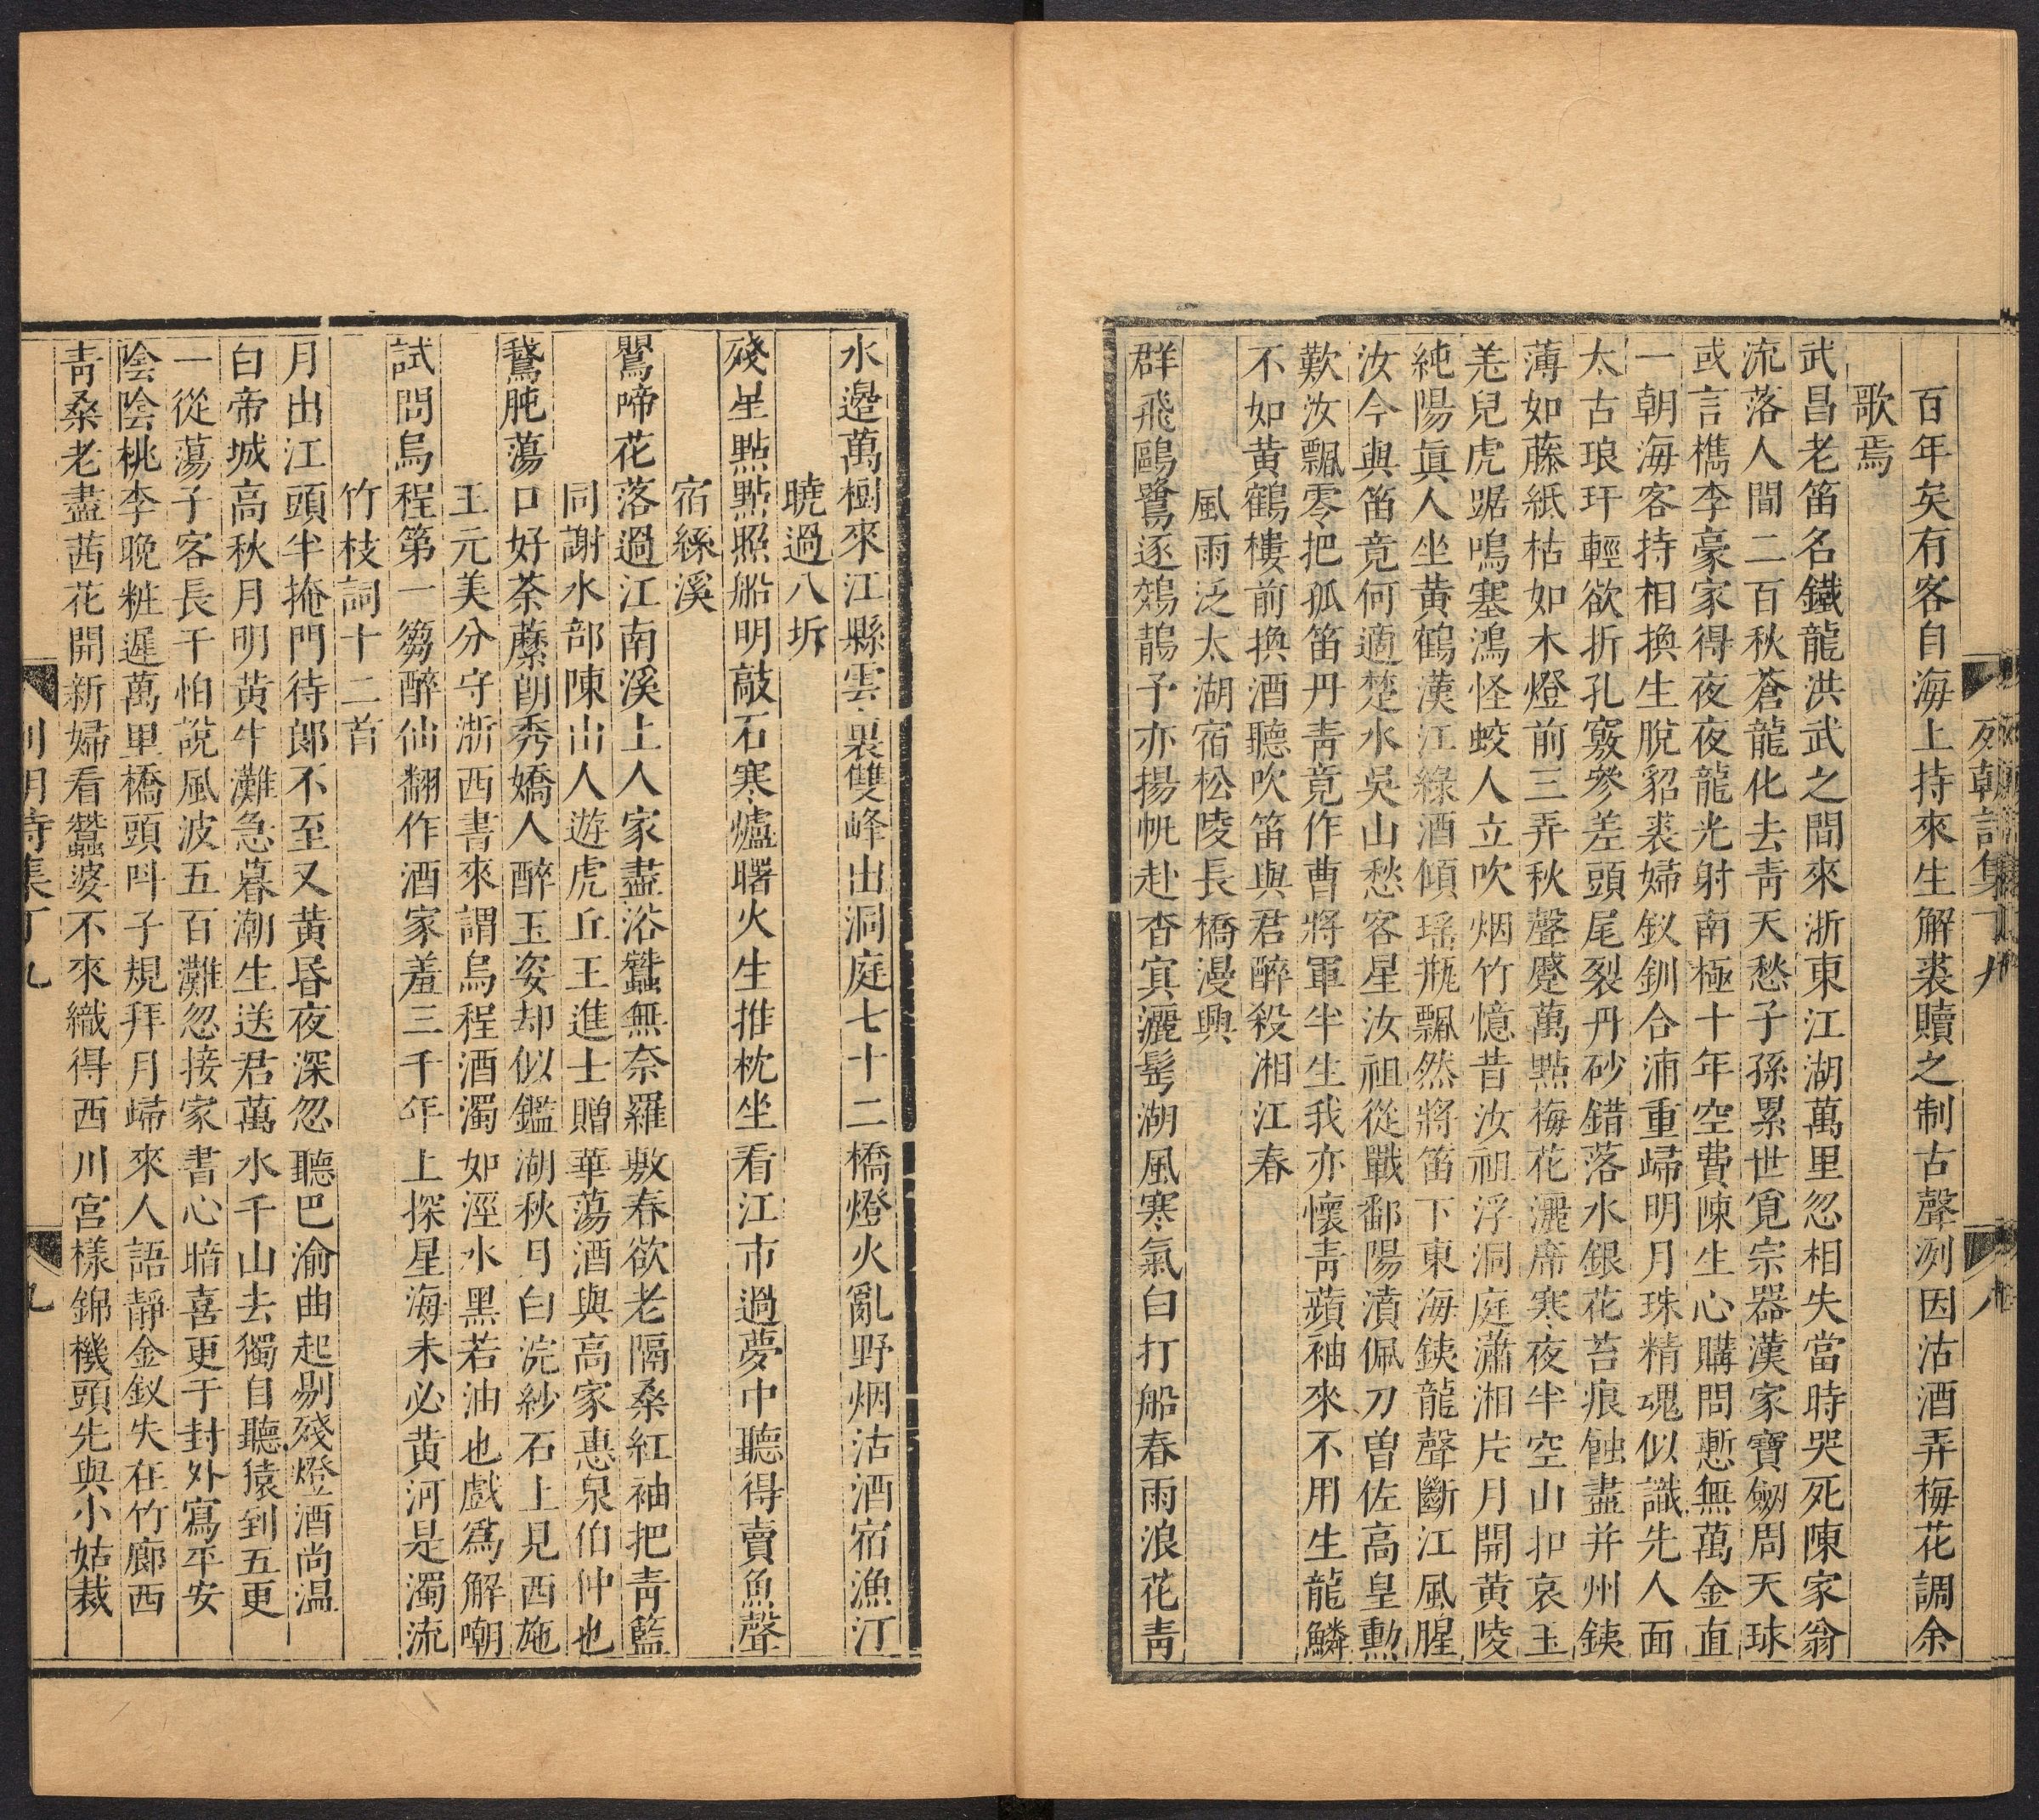 列朝詩集丁九
八
百年矣有客自海上持來生解裘贖之制古聲冽因沽酒弄梅花調余
歌焉
武昌老笛名鐵龍洪武之間來浙東江湖萬里忽相失當時哭死陳家翁
流落人間二百秋蒼龍化去青天愁子孫累世覓宗器漢家寶劒周天球
或言檇李豪家得夜夜龍光射南極十年空費陳生心購問慙無萬金直
一朝海客持相換生脫貂裘婦釵釧合浦重歸明月珠精魂似識先人面
太古琅玕輕欲折孔竅參差頭尾裂丹砂錯落水銀花苔痕蝕盡并州鐵
薄如藤紙枯如木燈前三弄秋聲蹙萬點梅花灑席寒夜半空山扣哀玉
羌兒虎踞鳴塞鴻怪蛟人立吹烟竹憶昔汝祖浮洞庭瀟湘片月開黃陵
純陽眞人坐黃鶴漢江綠酒傾瑤瓶飄然將笛下東海鐵龍聲斷江風腥
汝今與笛竟何適楚水吳山愁客星汝祖從戰鄱陽濆佩刀曽佐高皇勳
歎汝飄零把孤笛丹青竟作曹將軍半生我亦懷青蘋袖來不用生龍鱗
不如黃鶴樓前換酒聽吹笛與君醉殺湘江春
風雨泛太湖宿松陵長橋漫興
群飛鷗鷺逐鵁鶄予亦揚帆赴杳㝠灑髩湖風寒氣白打船春雨浪花青
水邉萬樹來江縣雲裏雙峰出洞庭七十二橋燈火亂野烟沽酒宿漁汀
曉過八坼
殘星點點照船明敲石寒爐曙火生推枕坐看江市過夢中聽得賣魚聲
宿綠溪
鸎啼花落過江南溪上人家盡浴蠶無奈羅敷春欲老隔桑紅袖把青籃
同謝水部陳山人遊虎丘王進士贈華蕩酒與高家惠泉伯仲也
鵞肫蕩口好荼䕷韵秀嬌人醉玉姿却似鑑湖秋月白浣紗石上見西施
王元美分守浙西書來謂烏程酒濁如涇水黑若油也戲爲解嘲
試問烏程第一篘醉仙翻作酒家羞三千年上探星海未必黃河是濁流
竹枝詞十二首
月出江頭半掩門待郎不至又黃昏夜深忽聽巴渝曲起剔殘燈酒尚温
白帝城高秋月明黃牛灘急暮潮生送君萬水千山去獨自聽猿到五更
一從蕩子客長干怕說風波五百灘忽接家書心暗喜更于封外寫平安
陰陰桃李晚粧遲萬里橋頭呌子規拜月歸來人語靜金釵失在竹廊西
青桑老盡茜花開新婦看蠶婆不來織得西川宮樣錦機頭先與小姑裁
列朝詩集丁九
九